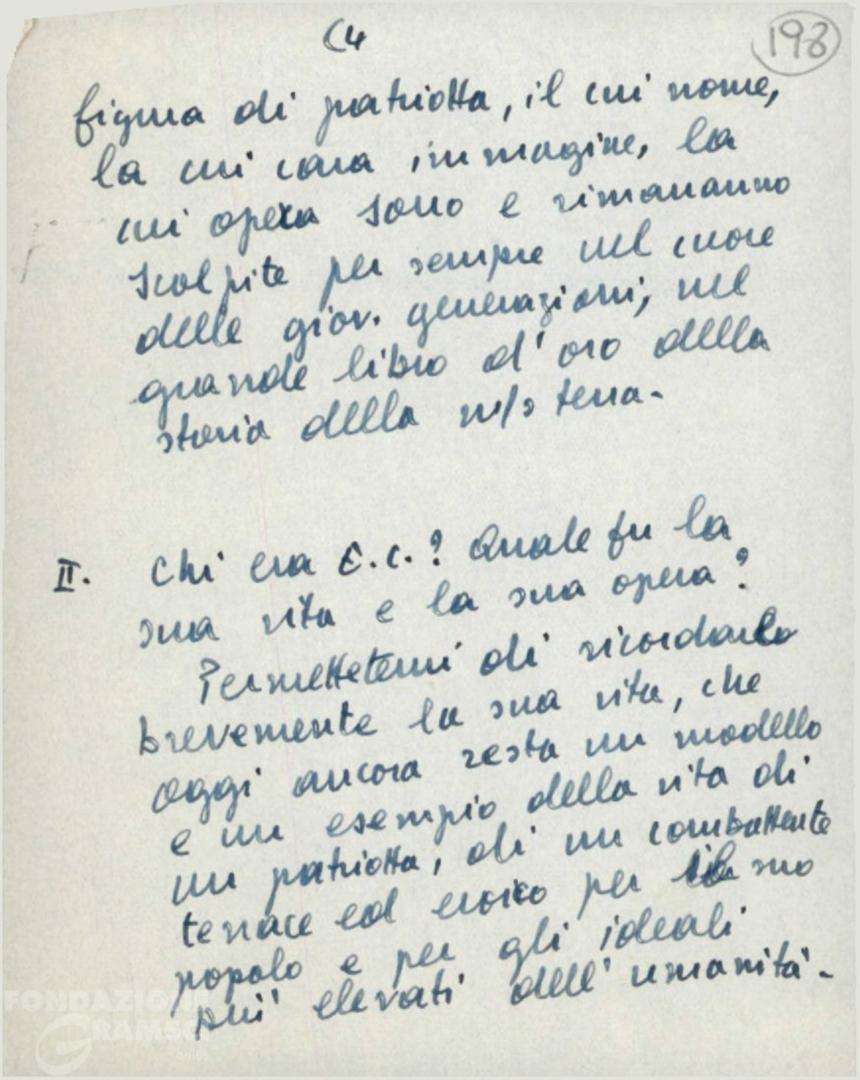 (4
198
figura di patriotta, il cui nome,
la cui cara immagine, la
cui opera sono e rimaranno
scolpite per sempre nel cuore
delle giov. generazioni, nel
grande libro d'oro della
storia della n/s terra.
II. Chi era E.C.? Quale fu la
sua vita e la sua opera?
Permettetemi di ricordarlo
brevemente la sua vita, che
oggi ancora resta un modello
e un esempio della vita di
un patriotta, di un combattente
tenace ed eroico per il suo
popolo e per gli ideali
più elevati dell'umanità.
FONDAZIONE
GRAMSCI